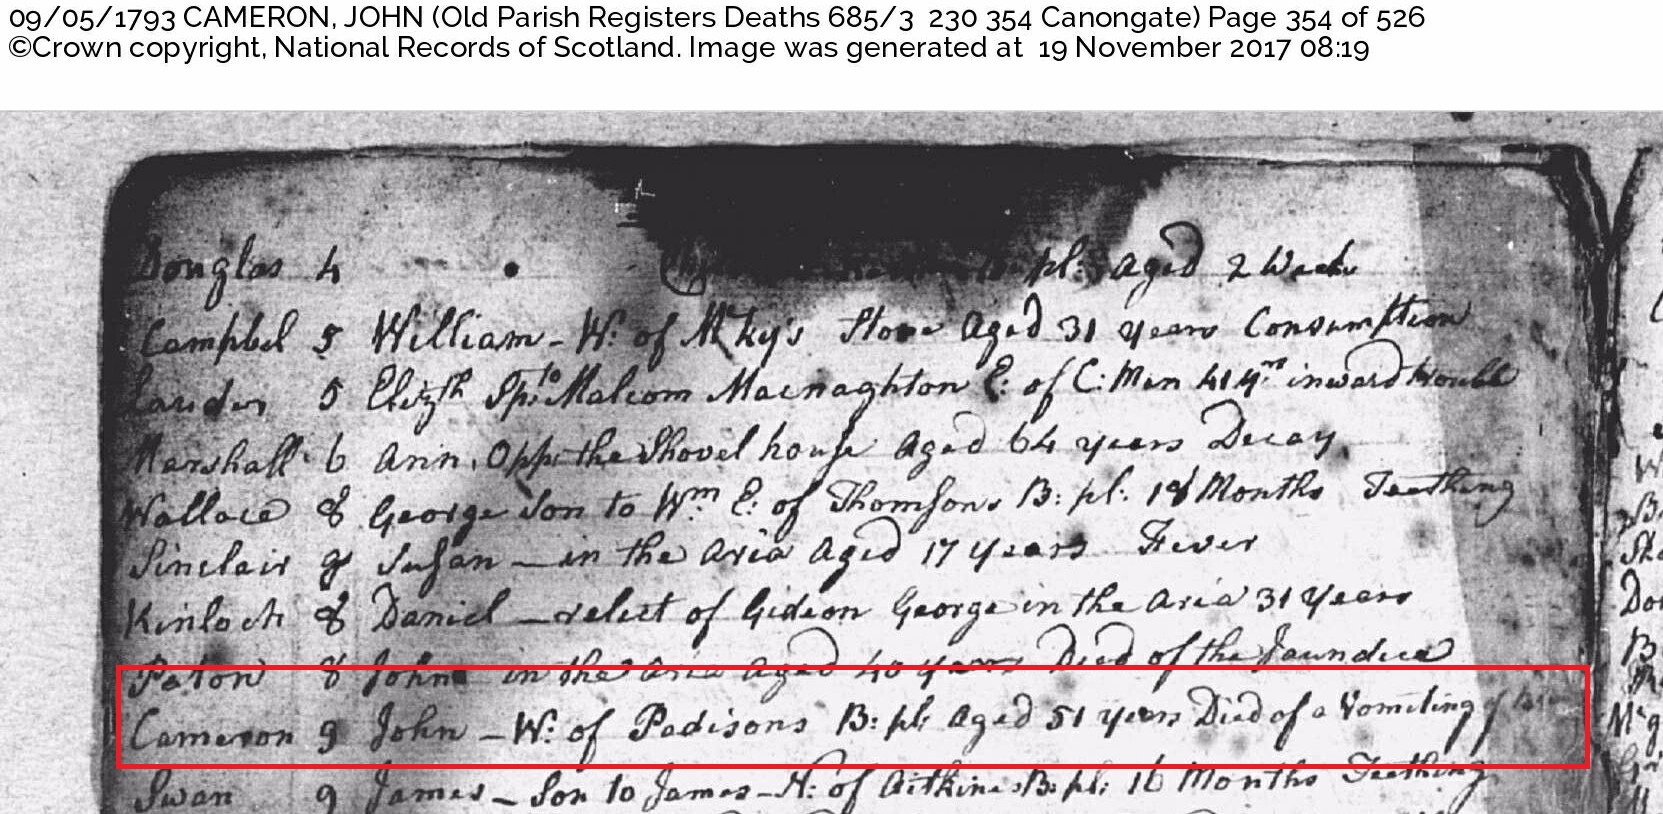 09/05/1793 CAMERON, JOHN (Old Parish Registers Deaths 685/3 230 354 Canongate) Page 354 of 526
©Crown copyright, National Records of Scotland. Image was generated at 19 November 2017 08:19
Douglas 4 pl: aged 2 Weeks
Campbel 5 William - W: of Mcky's Stone aged 31 years Consumption
5 Elizth Sp: to Malcom Macnaghton E: of C: Mon inward trouble
Marshall 6 Ann, Opp: the Shovel house aged 64 years Decay
Wallace 8 George Son to Wm E: of Thomsons B: pl: 18 Months Teething
Sinclair 8 Susan - in the Aria aged 17 years Fever
Kinloch 8 Daniel - relict of Gideon George in the Aria 31 Years
Paton 8 John in the Aria aged 40 years Died of the Jaundice
Cameron 9 John - W: of Padisons B: pl: Aged 51 years Died of a Vomiting
Swan 9 James - Son to James - H: of Aitkins B: pl: 16 Months Teething